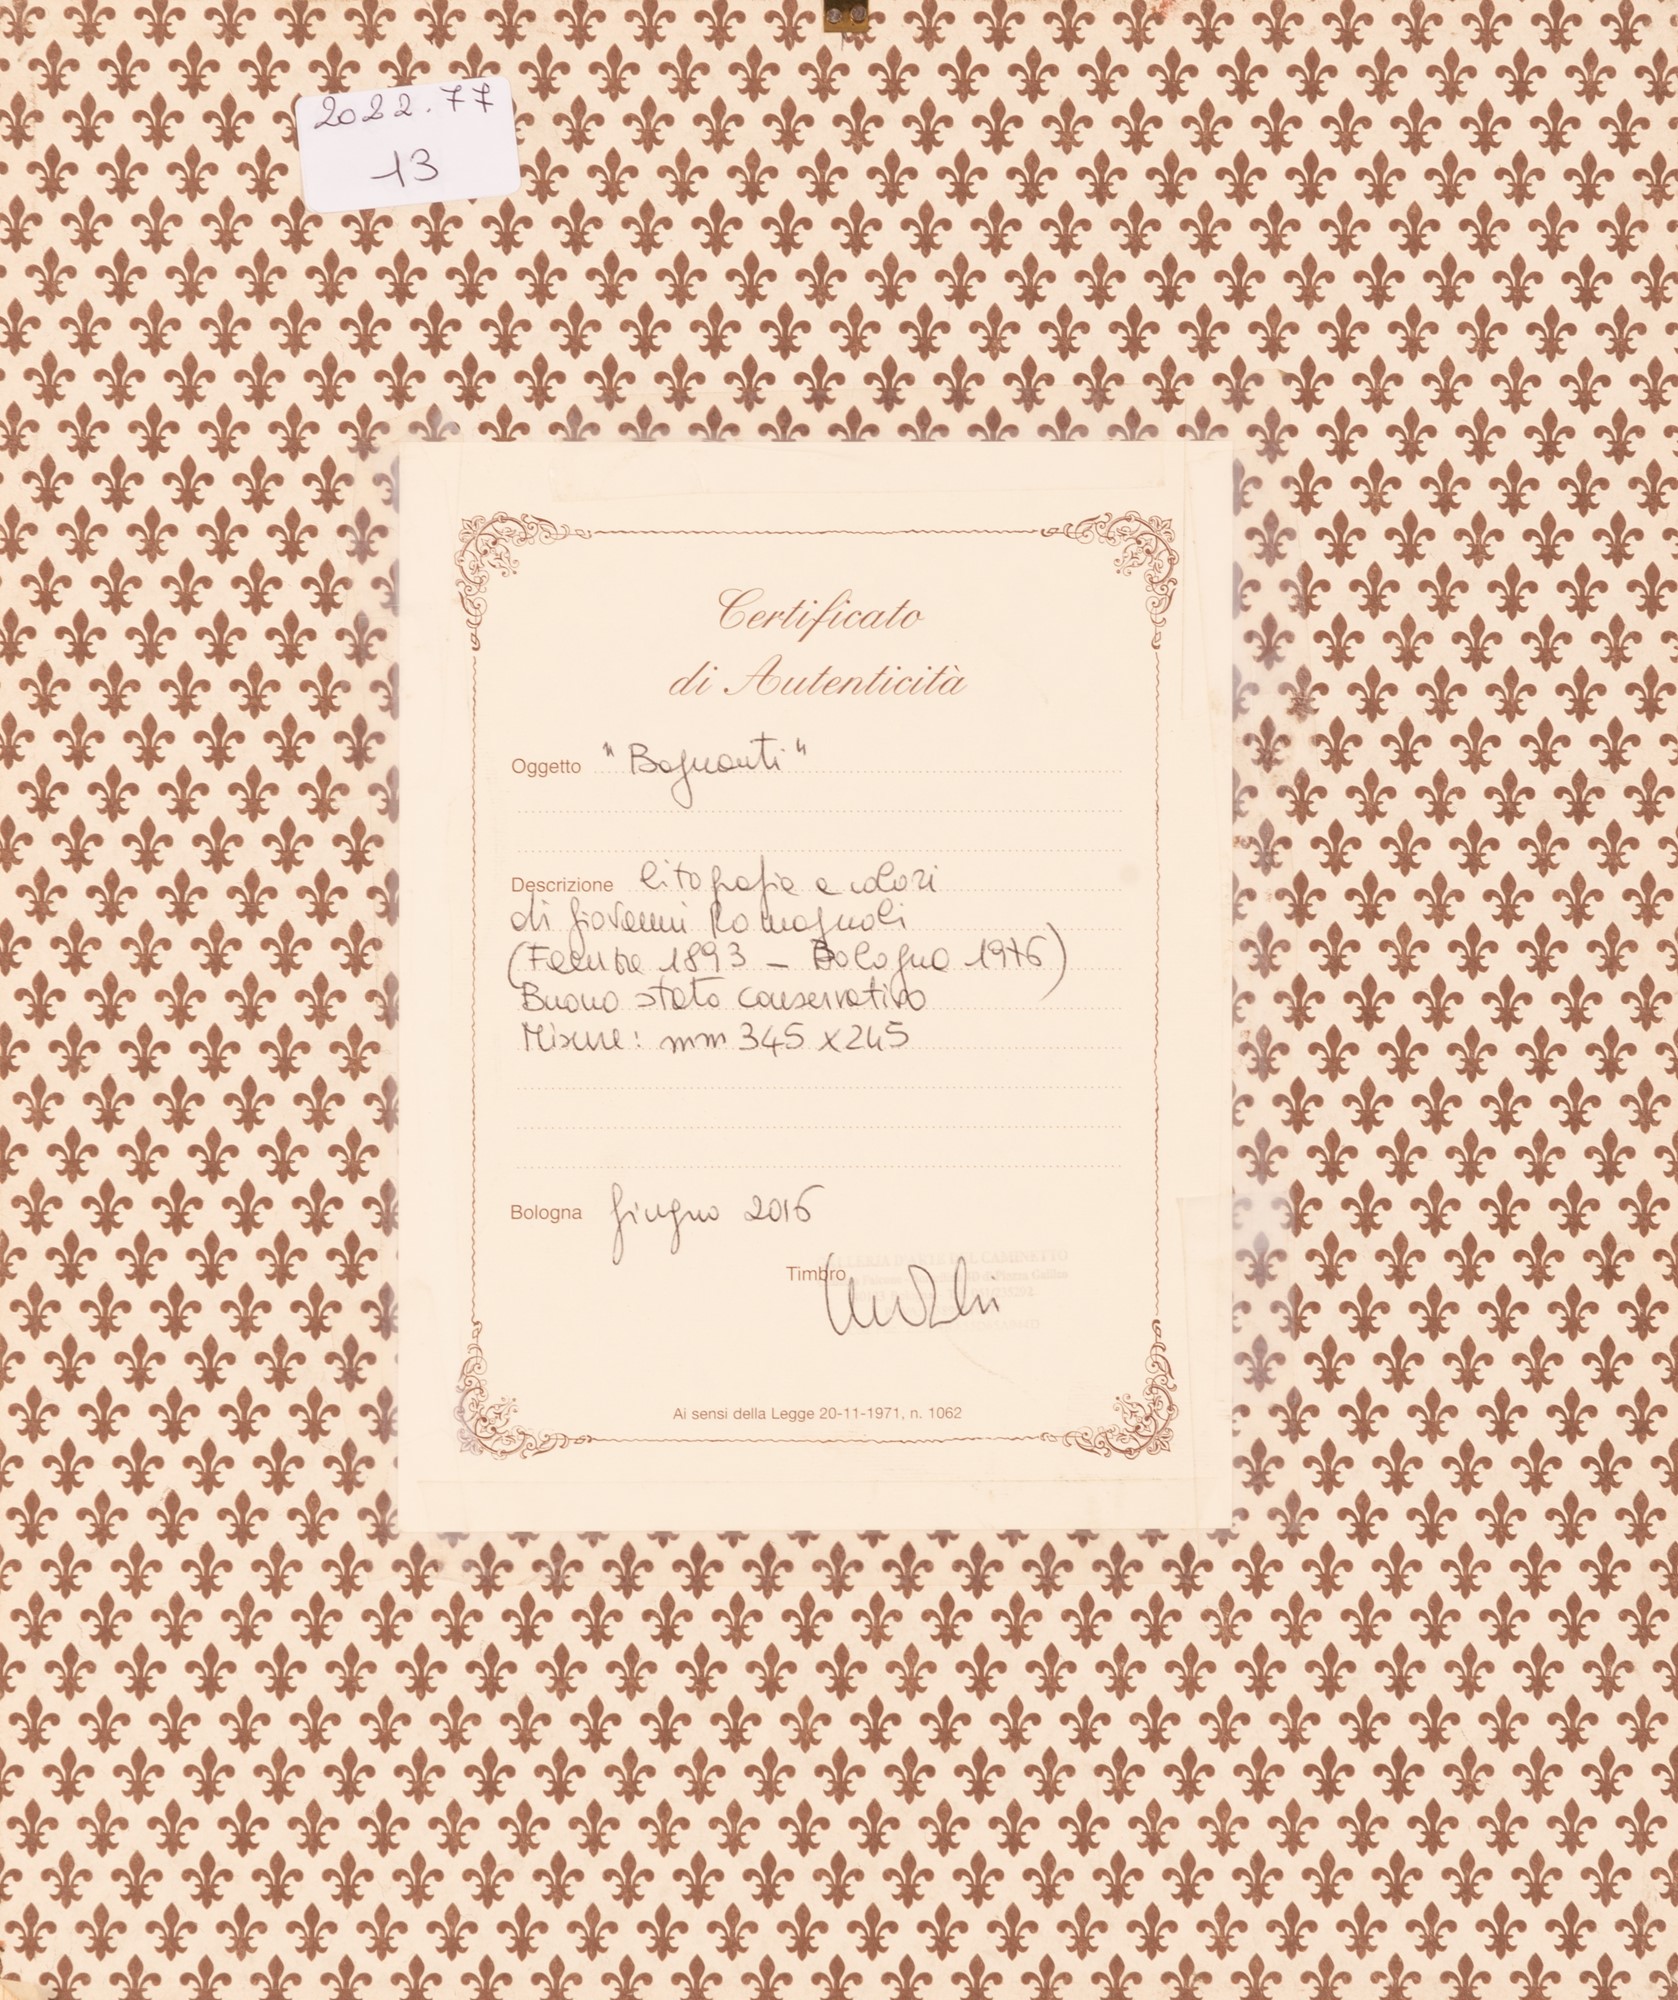 2022.77
13
Certificato
di Autenticità
Oggetto "Bagnanti"
Descrizione litografia a colori
di Giovanni Romagnoli
(Faenza 1893 – Bologna 1976)
Buono stato conservativo
Misure: mm 345 x 245
Bologna giugno 2016
GALLERIA D'ARTE DEL CAMINETTO
Timbro
Ai sensi della Legge 20-11-1971, n. 1062